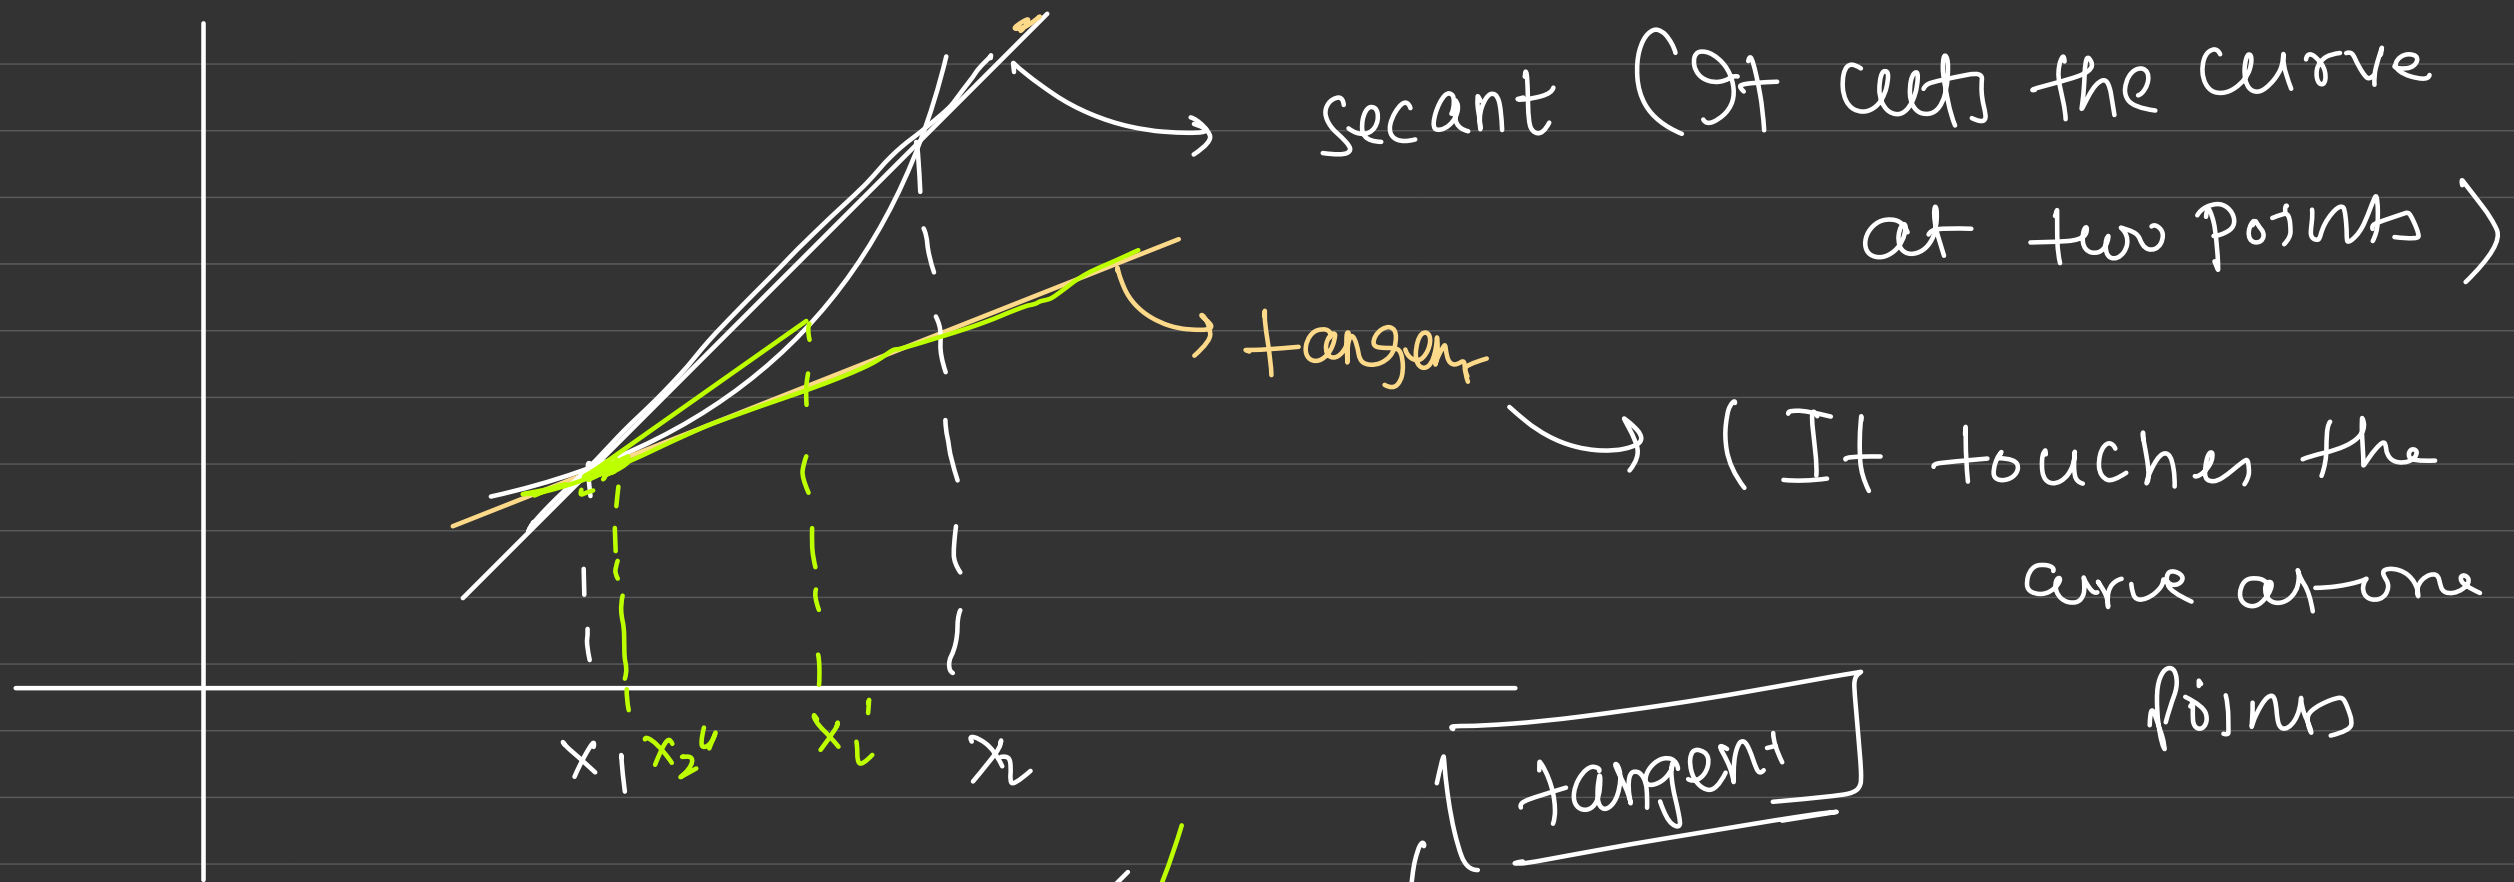 secant (It cuts the curve
at two points)
tangent
(It touches the
curve at one
Points
x₁
x₂
x₂'
tangent